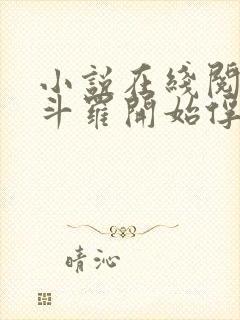 小説在綫閱
斗羅開始俘
晴沁